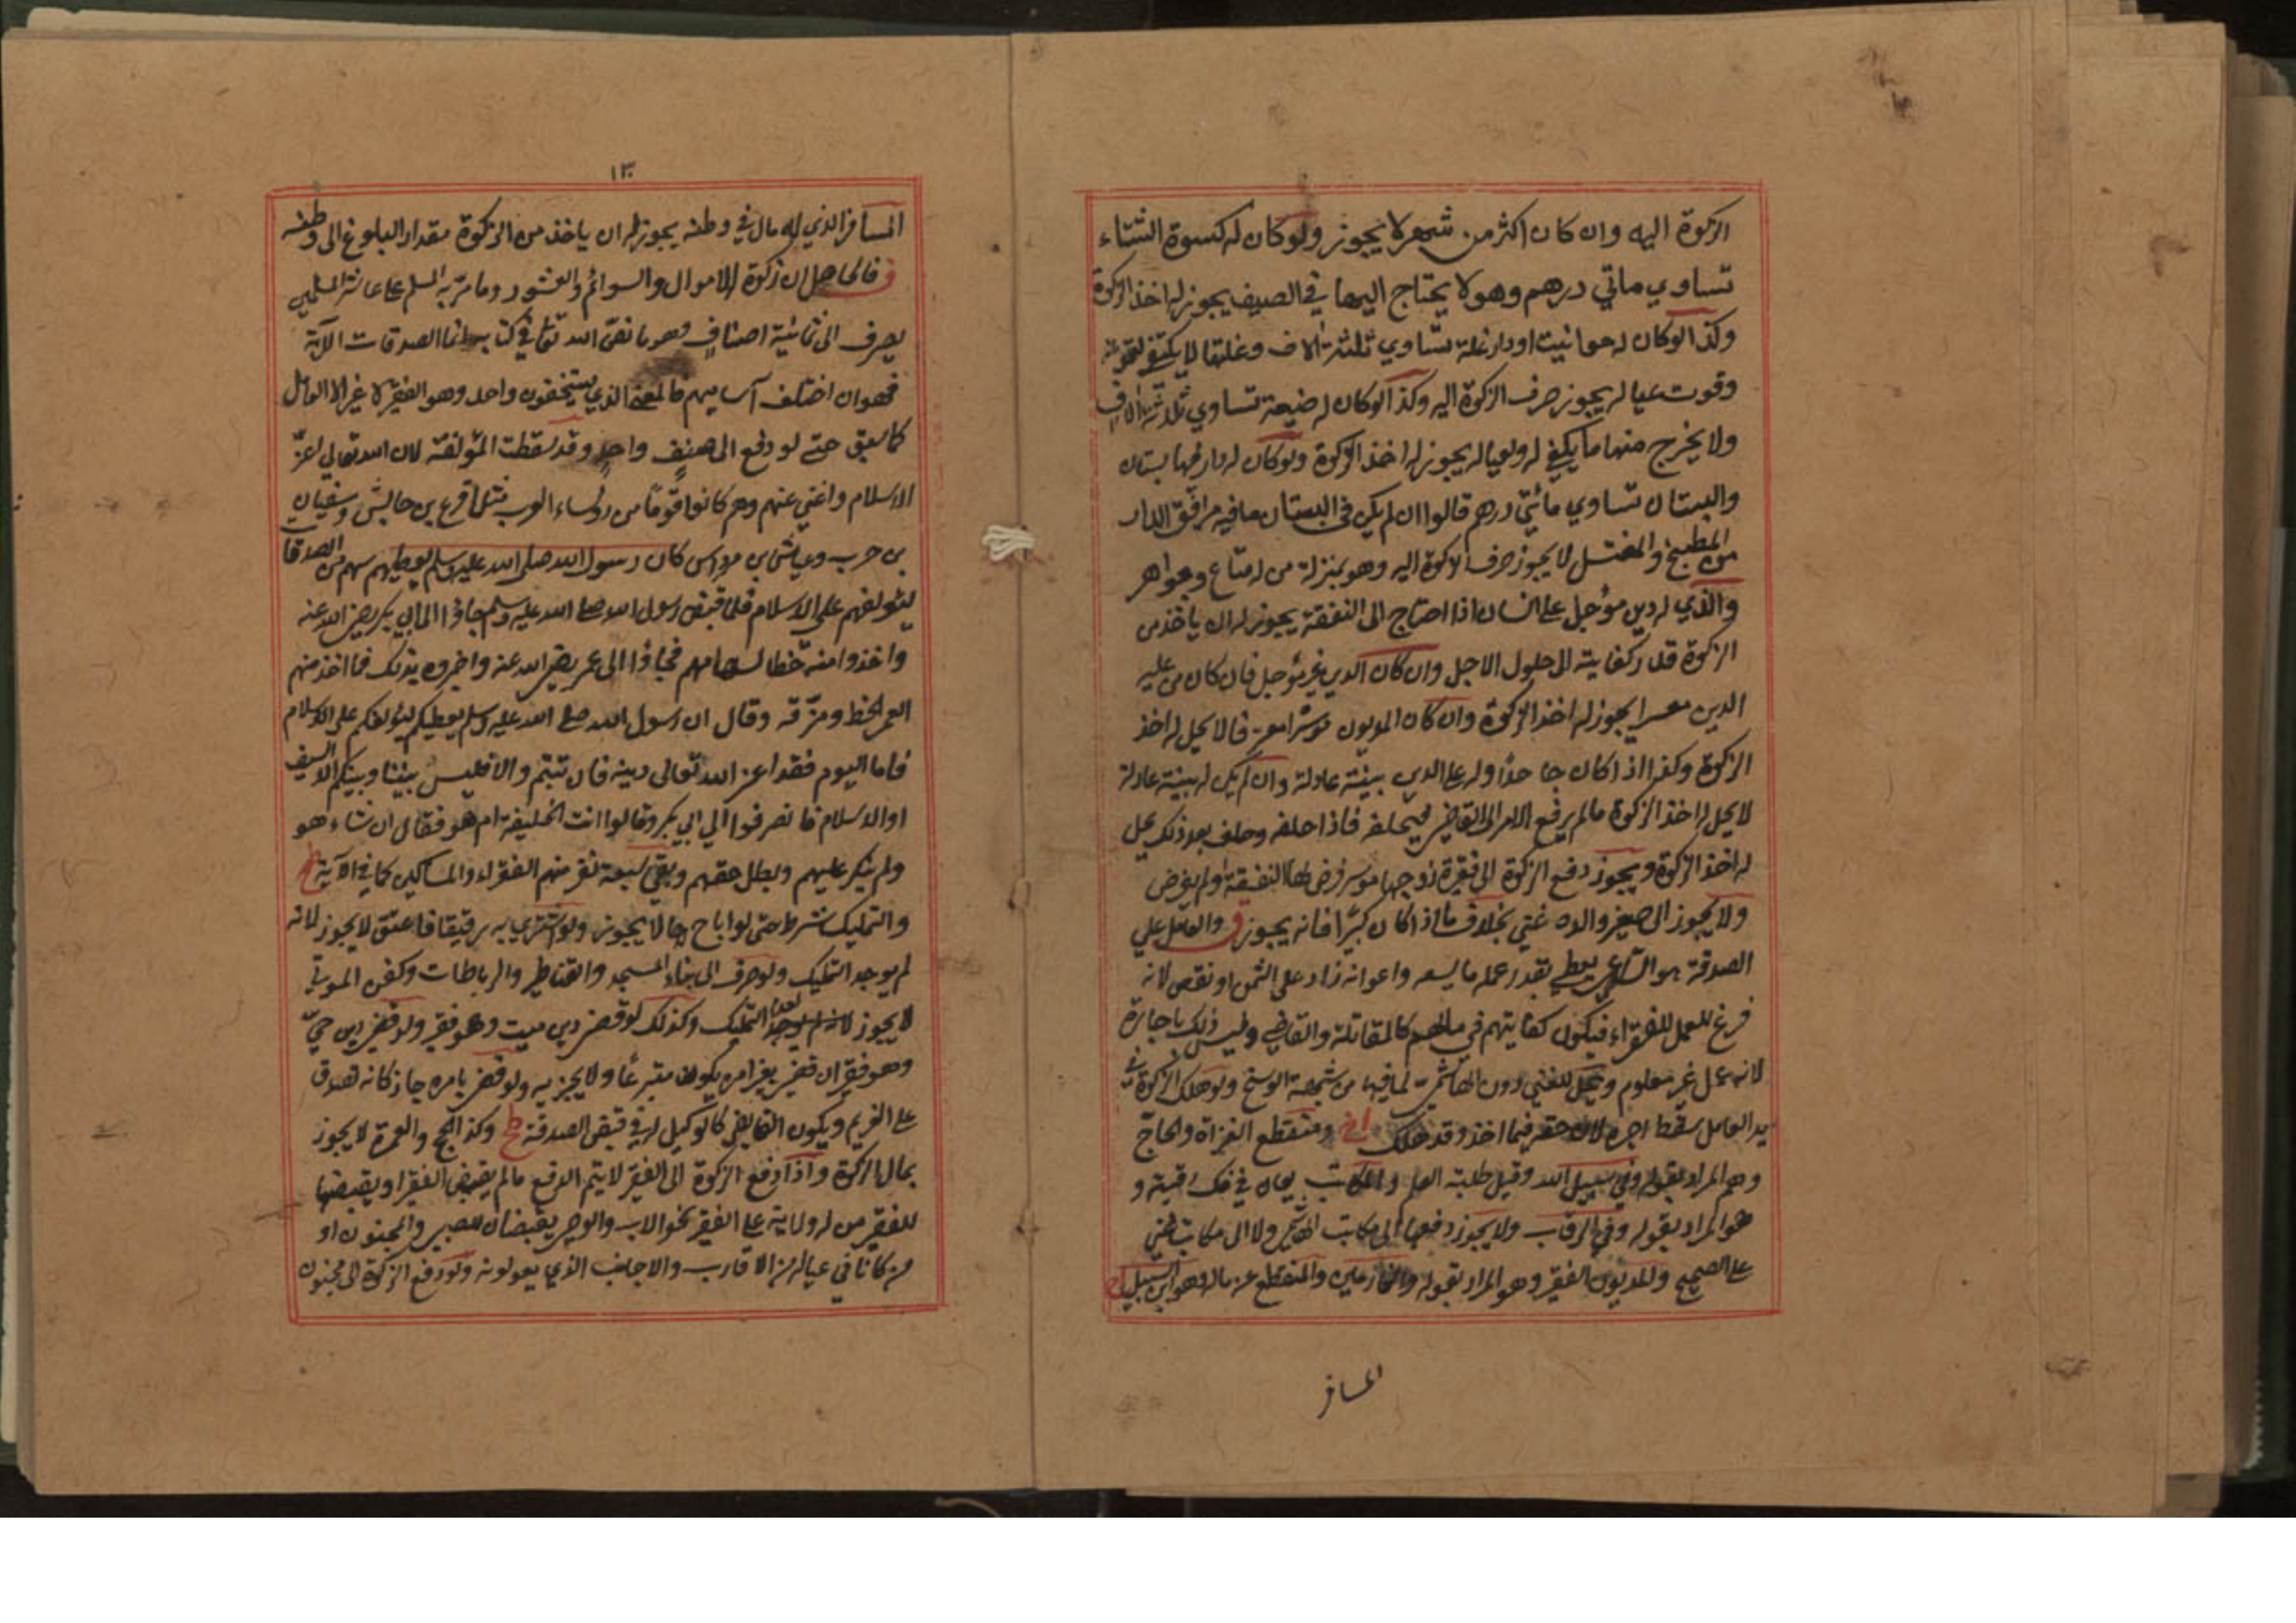 الزكوة اليه وان كان اكثر من شهر لا يجوز ولو كان له كسوة الشتاء
تساوي ماتي درهم وهو لا يحتاج اليها في الصيف يجوز له اخذ الزكوة
وكذا لو كان له حوانيت او دار غلة تساوي ثلثة الاف وغلتها لا يكفي لقوته
وقوت عياله يجوز صرف الزكوة اليه وكذا لو كان له ضيعة تساوي ثلاثة الاف
ولا يخرج منها ما يكفي له ولعياله يجوز له اخذ الزكوة ولو كان له دار فيها بستان
والبستان تساوي مائتي درهم قالوا ان لم يكن في البستان ما فيه مرافق الدار
من المطبخ والمغتسل لا يجوز صرف الزكوة اليه وهو بمنزلة من له متاع وجواهر
والذي له دين مؤجل على انسان اذا احتاج الى النفقة يجوز له ان ياخذ من
الزكوة قدر كفايته الى حلول الاجل وان كان الدين غير مؤجل فان كان من عليه
الدين معسرا يجوز له اخذ الزكوة وان كان المديون موسرا معترفا لا يحل له اخذ
الزكوة وكذا اذا كان جاحدا وله على الدين بينة عادلة وان لم يكن له بينة عادلة
لا يحل له اخذ الزكوة مالم يرفع الامر الى القاضي فيحلفه فاذا حلفه وحلف بعد ذلك يحل
له اخذ الزكوة ويجوز دفع الزكوة الى فقيرة زوجها موسر فرض لها النفقة او لم يفرض
ولا يجوز الى صغير والده غني بخلاف ما اذا كان كبيرا فانه يجوز ف والعامل علي
الصدقة هو الساعي يعطي بقدر عمله ما يسعه واعوانه زاد على الثمن او نقص لانه
فرغ للعمل للفقراء فيكون كفايتهم في مالهم كالمقاتلة والقاضي وليس ذلك باجارة
لانه عمل غير معلوم ويحل للغني دون الهاشمي لما فيها من شبهة الوسخ ولو هلك الزكوة في
يد العامل سقط اجره لان حقه فيما اخذ وقد هلك ومنقطع الغزاة والحاج
وهم المراد بقوله وفي سبيل الله وقيل طلبة العلم والمكاتب يعان في فك رقبته و
هو المراد بقوله وفي الرقاب ولا يجوز دفعها الى مكاتب الهاشمي ولا الى مكاتب غني
على الصحيح والمديون الفقير وهو المراد بقوله والغارمين والمنقطع عن ماله وهو ابن السبيل
المسافر
١٣
المسافر الذي له مال في وطنه يجوز له ان ياخذ من الزكوة مقدار البلوغ الى وطنه
ف فالحاصل ان زكوة الاموال والسوائم والعشور وما مر به المسلم على عاشر المسلمين
يصرف الى ثمانية اصناف وهو ما نص الله تعالى في كتابه انما الصدقات الآية
فهو ان اختلف آساميهم فالمعنى الذي يستحقون واحد وهو الفقر لا غير الا العامل
كما سبق حتى لو دفع الى صنف واحد وقد سقطت المؤلفة لان الله تعالى اعز
الاسلام واغني عنهم وهم كانوا قوما من رؤساء العرب مثل اقرع بن حابس وسفيان
بن حرب وعباس بن مرداس كان رسول الله صلى الله عليه وسلم يعطيهم سهم من الصدقات
ليؤلفهم على الاسلام فلما قبض رسول الله صلى الله عليه وسلم جاؤا الى ابي بكر رضي الله عنه
واخذوا منه خطا لسهامهم فجاؤا الى عمر رضي الله عنه واخبروه بذلك فما اخذ منهم
العمر الخط ومزقه وقال ان رسول الله صلى الله عليه وسلم يعطيكم ليؤلفكم على الاسلام
فاما اليوم فقد اعز الله تعالى دينه فان تبتم والا فليس بيننا وبينكم الا السيف
او الاسلام فانصرفوا الى ابي بكر وقالوا انت الخليفة ام هو فقال ان شاء هو
ولم ينكر عليهم وبطل حقهم وبقي سبعة نفر منهم الفقراء والمساكين كما في الآية
والتمليك شرط حتى لو اباح لها لا يجوز ولو اشتري به رقيقا فاعتق لا يجوز لانه
لم يوجد التمليك ولو صرف الى بناء المسجد والقناطر والرباطات وكفن الموتى
لا يجوز لعدم التمليك وكذلك لو قضى دين ميت وهو فقير ولو قضى دين حي
وهو فقير ان قضى بغير امره يكون متبرعا ولا يجزيه ولو قضى بامره جاز كانه تصدق
على الغريم ويكون القابض كالوكيل له في قبض الصدقة وكذا الحج والعمرة لا يجوز
بمال الزكوة واذا دفع الزكوة الى الفقير لا يتم الدفع مالم يقبض الفقير او يقبضها
للفقير من له ولاية على الفقير نحو الاب والوصي يقبضان للصبي والمجنون او
من كانا في عياله من الاقارب والاجانب الذي يعولونه ولو دفع الزكوة الى مجنون